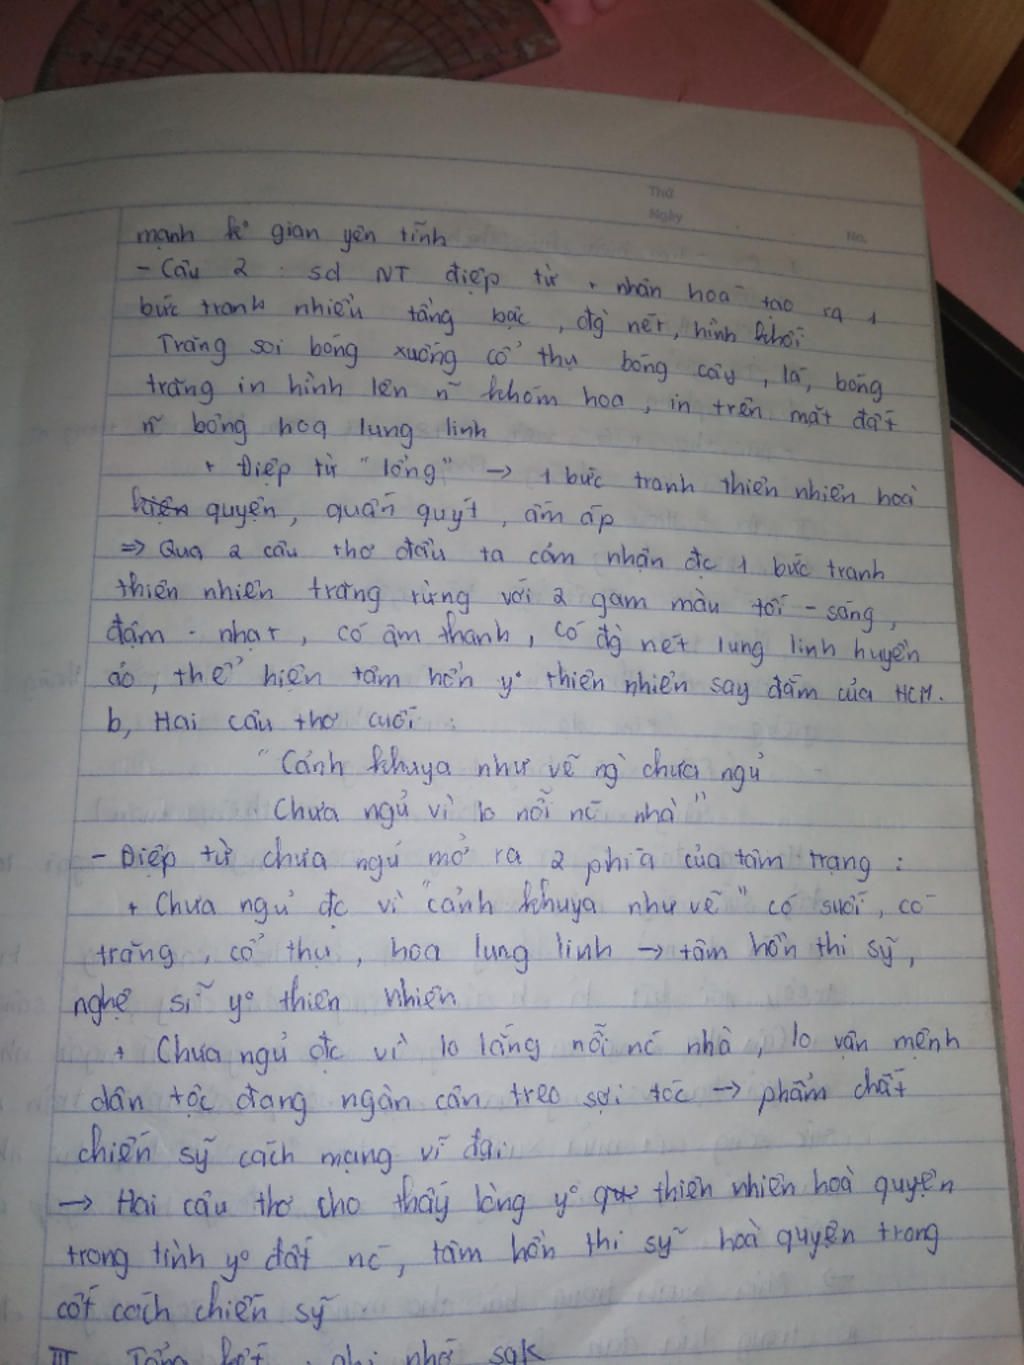 Thứ
Ngày
No.
mạnh k° gian yên tĩnh
- Câu 2 : sd NT điệp từ + nhân hoá tạo ra 1
bức tranh nhiều tầng bậc, đg nét, hình khối
Trăng soi bóng xuống cổ thụ bóng cây, lá, bóng
trăng in hình lên n~ khóm hoa, in trên mặt đất
n~ bông hoa lung linh
+ Điệp từ "lồng" → 1 bức tranh thiên nhiên hoà
quyện, quấn quýt, ấm áp
=> Qua 2 câu thơ đầu ta cảm nhận đc 1 bức tranh
thiên nhiên trăng rừng với 2 gam màu tối - sáng,
đậm - nhạt, có âm thanh, có đg nét lung linh huyền
ảo, thể hiện tâm hồn y° thiên nhiên say đắm của HCM.
b, Hai câu thơ cuối :
"Cảnh khuya như vẽ ng` chưa ngủ
Chưa ngủ vì lo nỗi nc´ nhà"
- Điệp từ chưa ngủ mở ra 2 phía của tâm trạng :
+ Chưa ngủ đc vì "cảnh khuya như vẽ" có suối, có
trăng, cổ thụ, hoa lung linh → tâm hồn thi sỹ,
nghệ sĩ y° thiên nhiên
+ Chưa ngủ đc vì lo lắng nỗi nc´ nhà, lo vận mệnh
dân tộc đang ngàn cân treo sợi tóc → phẩm chất
chiến sỹ cách mạng vĩ đại
→ Hai câu thơ cho thấy lòng y° thiên nhiên hoà quyện
trong tình y° đất nc´, tâm hồn thi sỹ hoà quyện trong
cốt cách chiến sỹ
III Tổng kết : ghi nhớ sgk